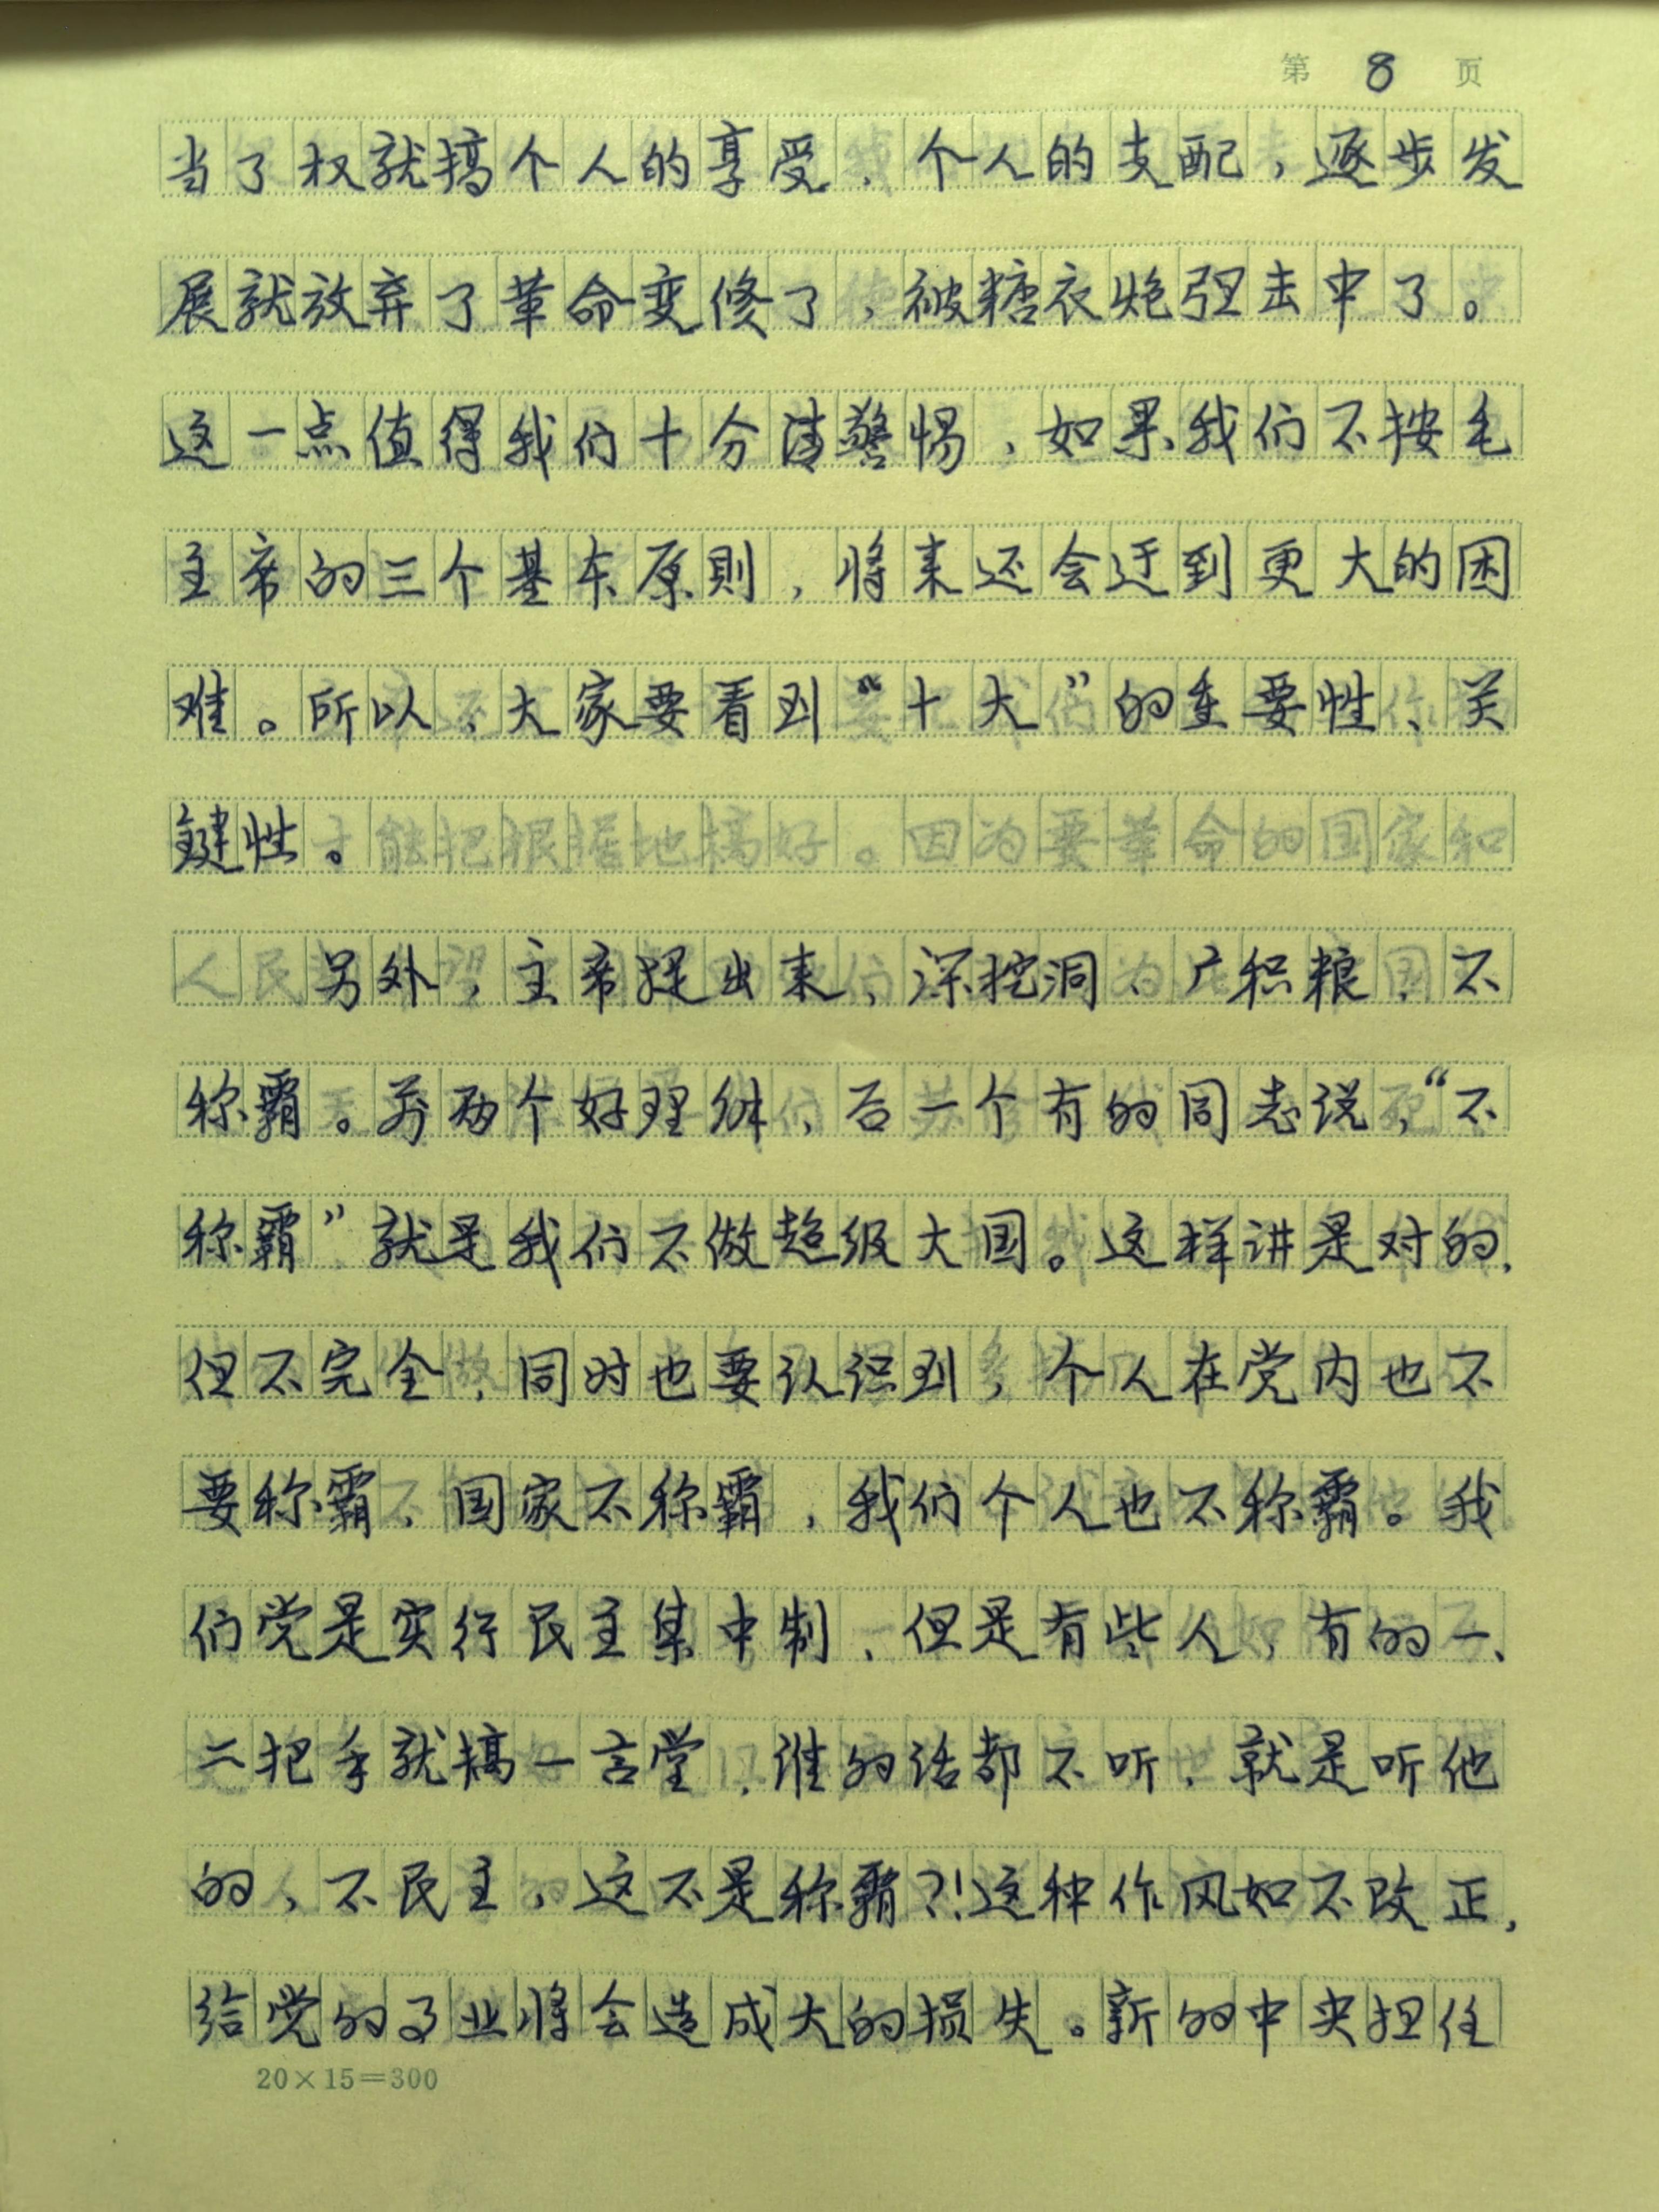 第 8 页
当了权就搞个人的享受，个人的支配，逐步发
展就放弃了革命变修了，被糖衣炮弹击中了。
这一点值得我们十分清警惕，如果我们不按毛
主席的三个基本原则，将来还会迂到更大的困
难。所以，大家要看到“十大”的重要性、关
键性。
另外，主席提出来，深挖洞、广积粮、不
称霸。前两个好理解，后一个有的同志说，“不
称霸”就是我们不做超级大国。这样讲是对的，
但不完全，同时也要认识到，个人在党内也不
要称霸，国家不称霸，我们个人也不称霸。我
们党是实行民主集中制，但是有些人，有的一、
二把手就搞一言堂，谁的话都不听，就是听他
的，不民主，这不是称霸?!这种作风如不改正，
给党的事业将会造成大的损失。新的中央担任
20×15=300